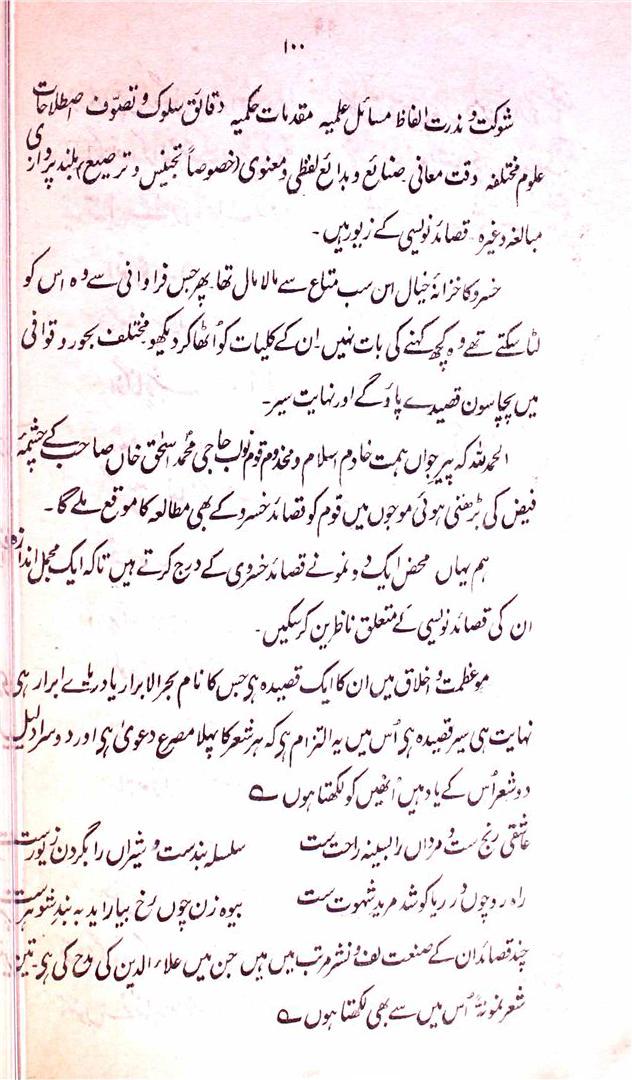 ۱۰۰
شوکت و ندرت الفاظ مسائل علمیہ مقدمات حکمیہ دقائق سلوک و تصوّف اصطلاحات
علوم مختلفہ دقت معانی صنائع و بدائع لفظی و معنوی (خصوصاً تجنیس و ترصیع) بلند پردازی
مبالغہ وغیرہ۔ قصائد نویسی کے زیور ہیں۔
خسرو کا خزانۂ خیال ان سب متاع سے مالا مال تھا۔ پھر جس فراوانی سے وہ اس کو
لٹا سکتے تھے وہ کچھ کہنے کی بات نہیں۔ ان کے کلیات کو اُٹھا کر دیکھو مختلف بحور و قوافی
میں پچاسوں قصیدے پاؤگے اور نہایت سیر۔
الحمد للہ کہ پیر جواں ہمت خادم اسلام و مخدوم قوم نواب حاجی محمد اسحٰق خاں صاحب کے چشمۂ
فیض کی بڑھتی ہوئی موجوں میں قوم کو قصائد خسرو کے بھی مطالعہ کا موقع ملے گا۔
ہم یہاں محض ایک دو نمونے قصائد خسروی کے درج کرتے ہیں تاکہ ایک مجمل اندازہ
ان کی قصائد نویسی کے متعلق ناظرین کر سکیں۔
موعظت و اخلاق میں ان کا ایک قصیدہ ہی جس کا نام بحر الابرار یا دریائے ابرار ہی
نہایت ہی سیر قصیدہ ہی اُس میں یہ التزام ہی کہ ہر شعر کا پہلا مصرع دعویٰ ہی اور دوسرا دلیل
دو شعر اُس کے یاد ہیں اُنھیں کو لکھتا ہوں ؎
عاشقی رنج ست و مرداں را بسینہ راحت ست سلسلہ بندست و شیراں را بگردن زیورست
راہ رو چوں در ریا کوشد مرید شہوت ست بیوہ زن چوں رخ بیاراید بہ بند شوہرست
چند قصائد ان کے صنعت لف و نشر مرتب میں ہیں جن میں علاء الدین کی مدح کی ہی۔ تین
شعر نمونۃً اُس میں سے بھی لکھتا ہوں ؎